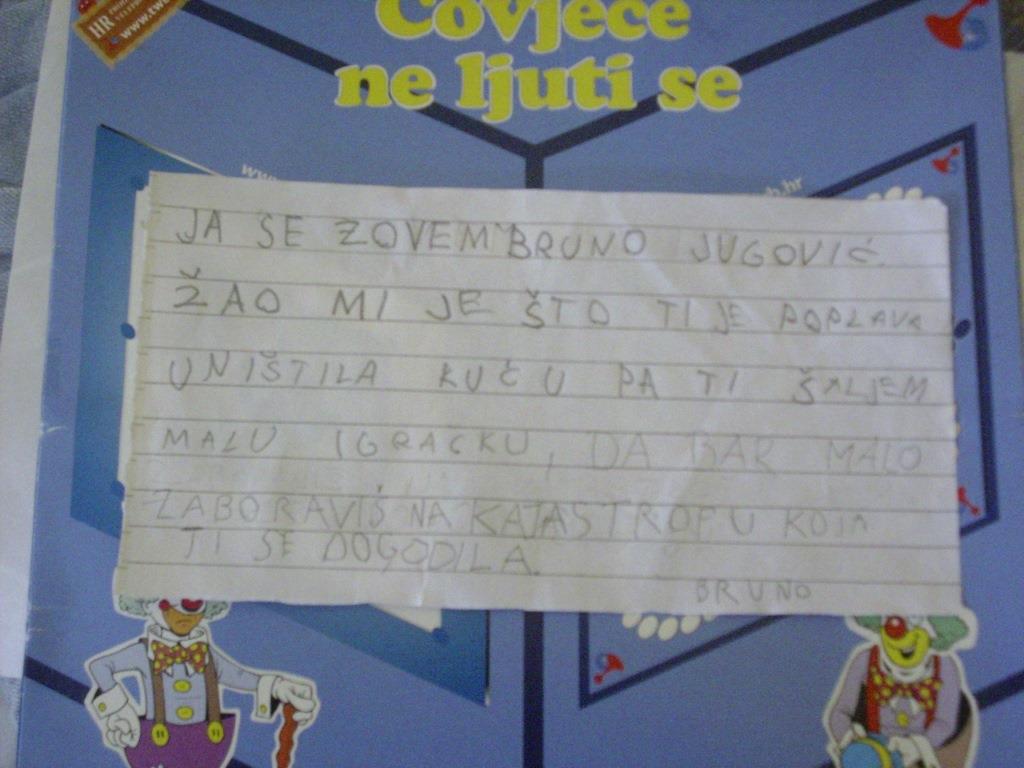 HR
Čovječe
ne ljuti se
JA SE ZOVEM BRUNO JUGOVIĆ.
ŽAO MI JE ŠTO TI JE POPLAVA
UNIŠTILA KUĆU PA TI ŠALJEM
MALU IGRAČKU, DA BAR MALO
ZABORAVIŠ NA KATASTROFU KOJA
TI SE DOGODILA.
BRUNO